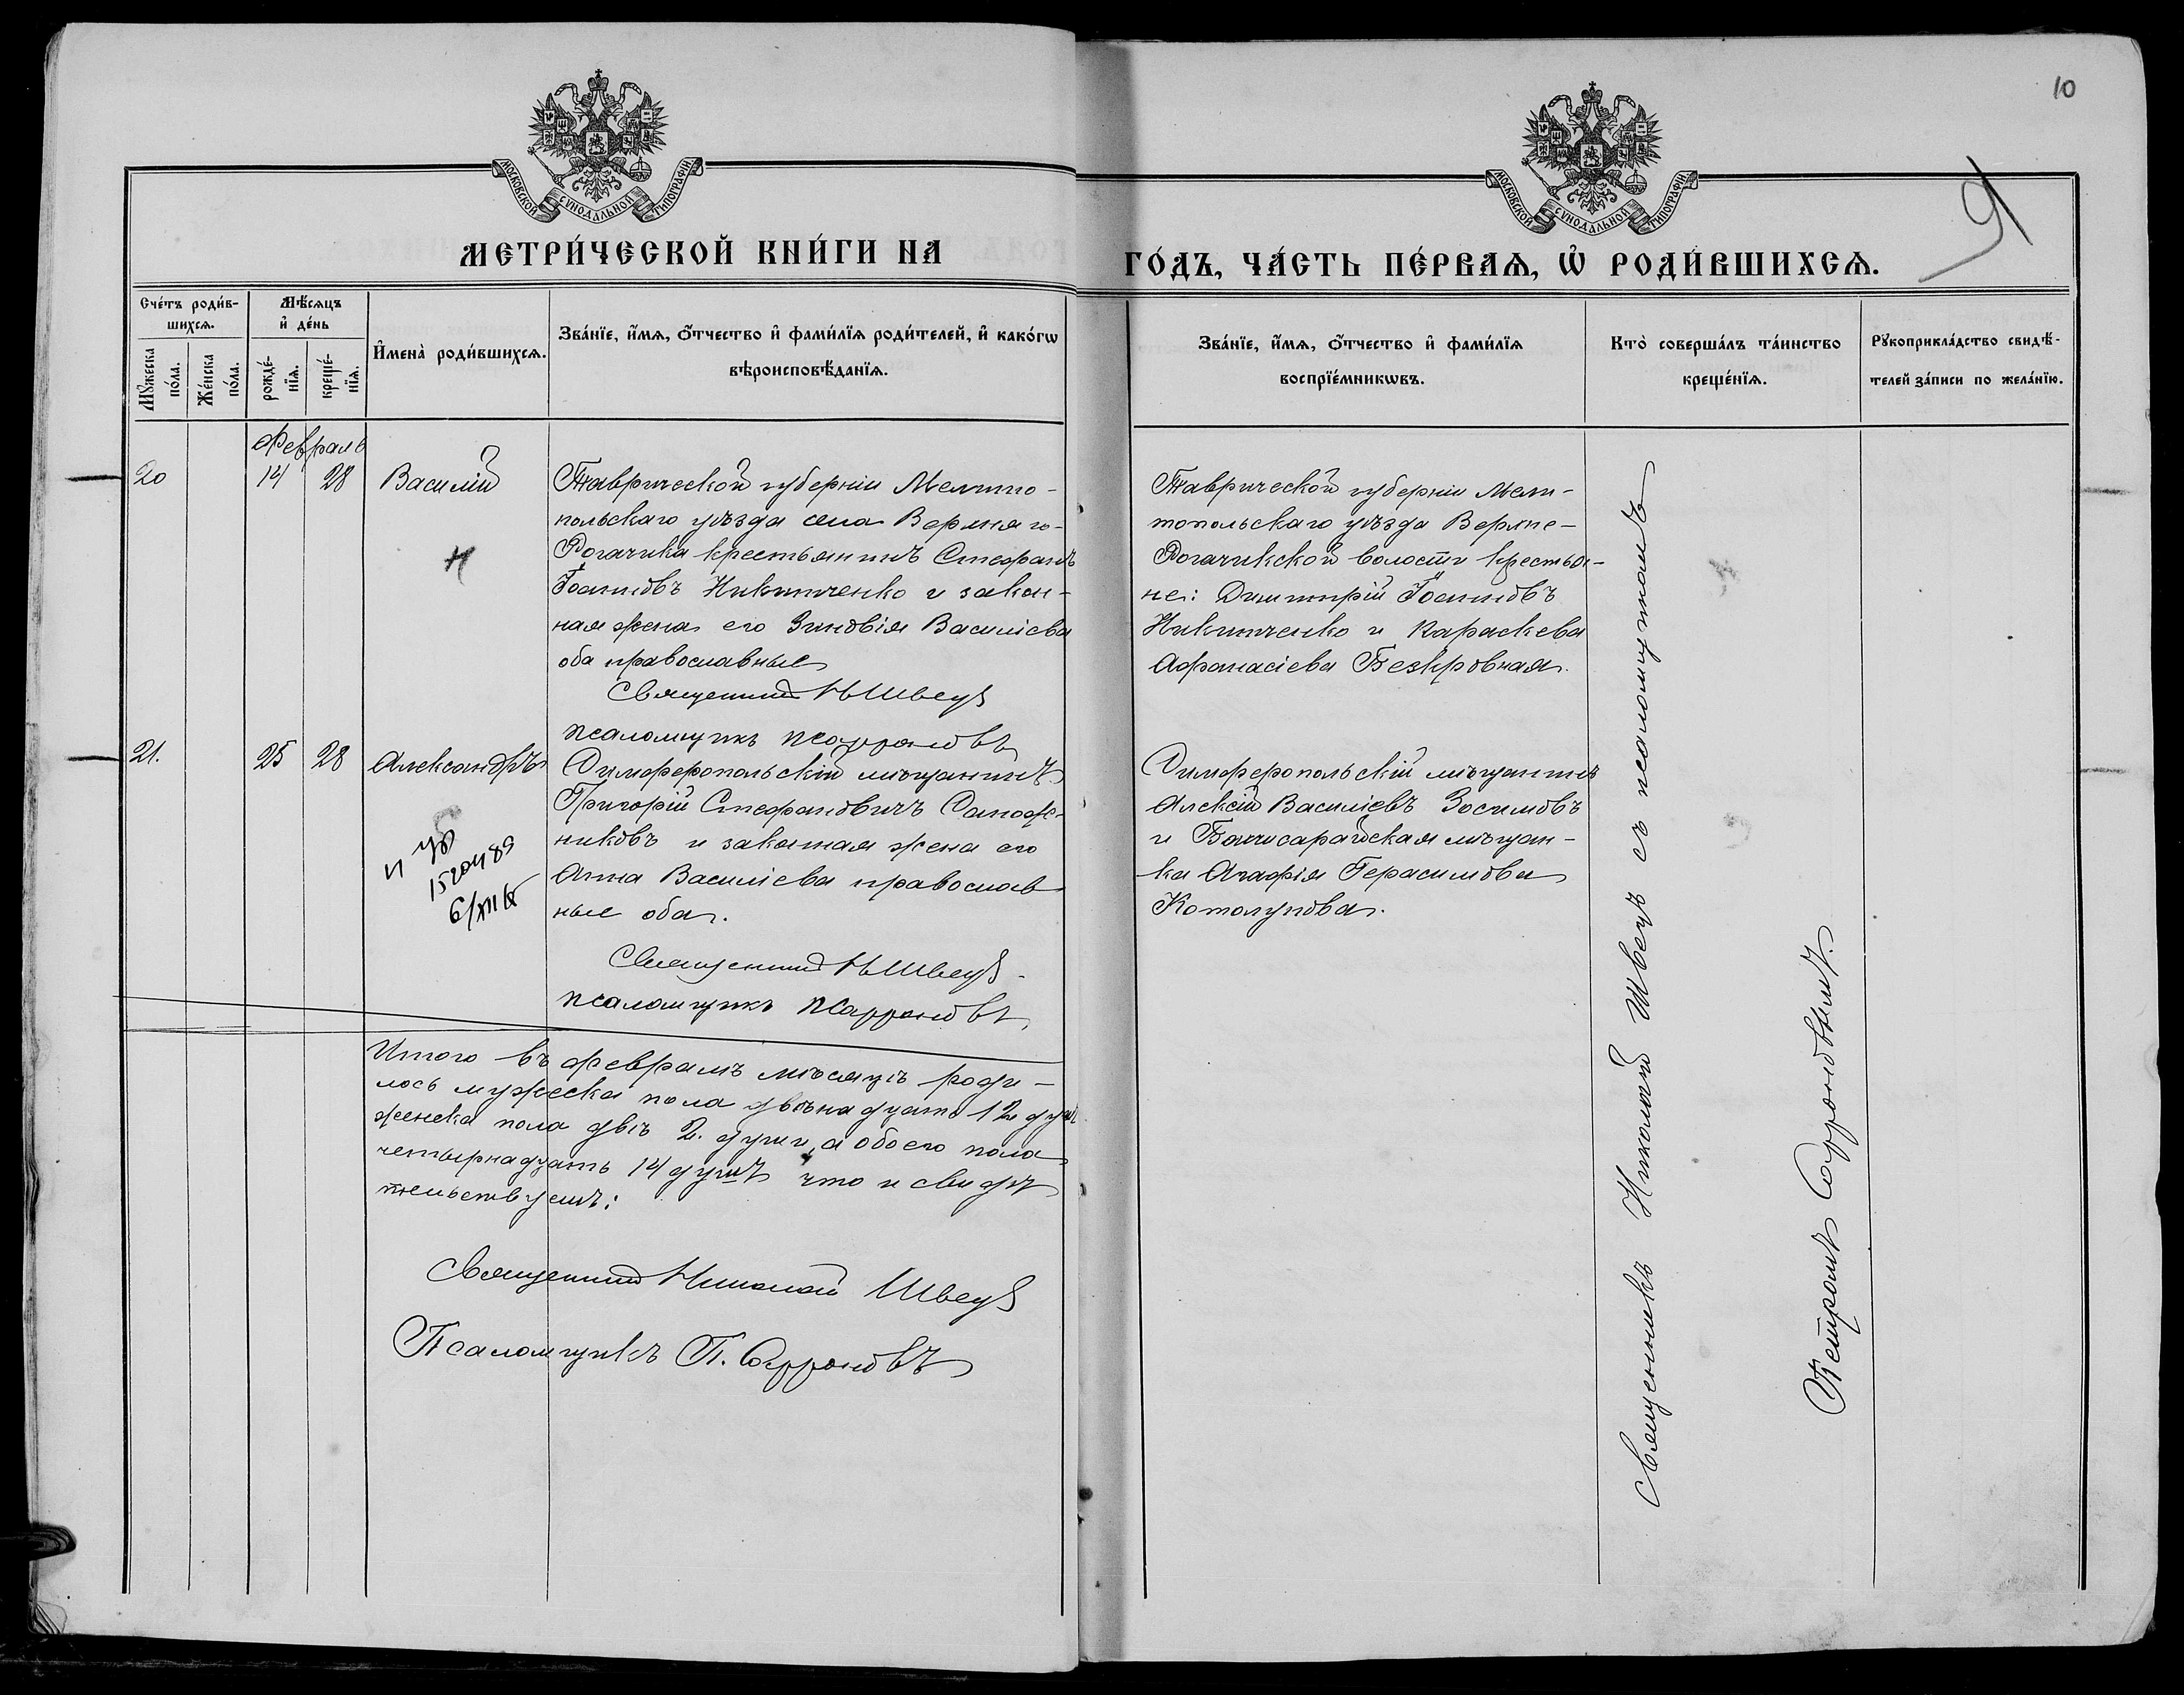 10
9
МОСКОВСКОЙ СУНОДАЛЬНОЙ ТИПОГРАФІИ
МОСКОВСКОЙ СУНОДАЛЬНОЙ ТИПОГРАФІИ
МЕТРИ́ЧЕСКОЙ КНИ́ГИ НА
ГО́ДЪ, ЧА́СТЬ ПЕ́РВАѦ, Ѡ҆ РОДИ́ВШИХСѦ.
Сче́тъ роди́в-
шихсѧ.
Мꙋ́жеска
по́ла.
Же́нска
по́ла.
Мѣ́сяцъ
и҆ де́нь
рожде́-
нїѧ.
креще́-
нїѧ.
И҆мена̀ роди́вшихсѧ.
Зва́нїе, и҆́мѧ, ѻ҆́тчество и҆ фами́лїѧ роди́телей, и҆ како́гѡ
вѣроисповѣ́данїѧ.
Зва́нїе, и҆́мѧ, ѻ҆́тчество и҆ фами́лїѧ
воспрїе́мникѡвъ.
Кто̀ соверша́лъ та́инство
креще́нїѧ.
Рꙋкоприкла́дство свидѣ́-
телей за́писи по жела́нїю.
Февраль
20
14 28
Василій
Таврической губерніи Мелито-
польскаго уѣзда села Верхняго-
Рогачика крестьянинъ Стефанъ
Іоанновъ Никитченко и закон-
ная жена его Зиновія Василіева
оба православные
Священникъ Н Швецъ
Псаломщикъ П Сафроновъ
Таврической губерніи Мели-
топольскаго уѣзда Верхне-
Рогачикской волости крестья-
не: Димитрій Іоанновъ
Никитченко и Параскева
Афанасіева Безкровная.
21.
25 28
Александръ
Симферопольскій мѣщанинъ
Григорій Стефановичъ Сапож-
никовъ и законная жена его
Анна Василіева православ
ные оба.
Священникъ Н Швецъ
Псаломщикъ П Сафроновъ
Симферопольскій мѣщанинъ
Алексій Василіевъ Зосимовъ
и Бахчисарайская мѣщан-
ка Агафія Герасимова
Котолупова.
Священникъ Николай Швецъ съ псаломщикомъ
Петромъ Сафроновымъ.
Итого въ февралѣ мѣсяцѣ роди-
лось мужеска пола двѣнадцать 12 душъ
женска пола двѣ 2. души, а обоего пола
четырнадцать 14 душъ что и свидѣ
тельствуемъ:
Священникъ Николай Швецъ
Псаломщикъ П. Сафроновъ